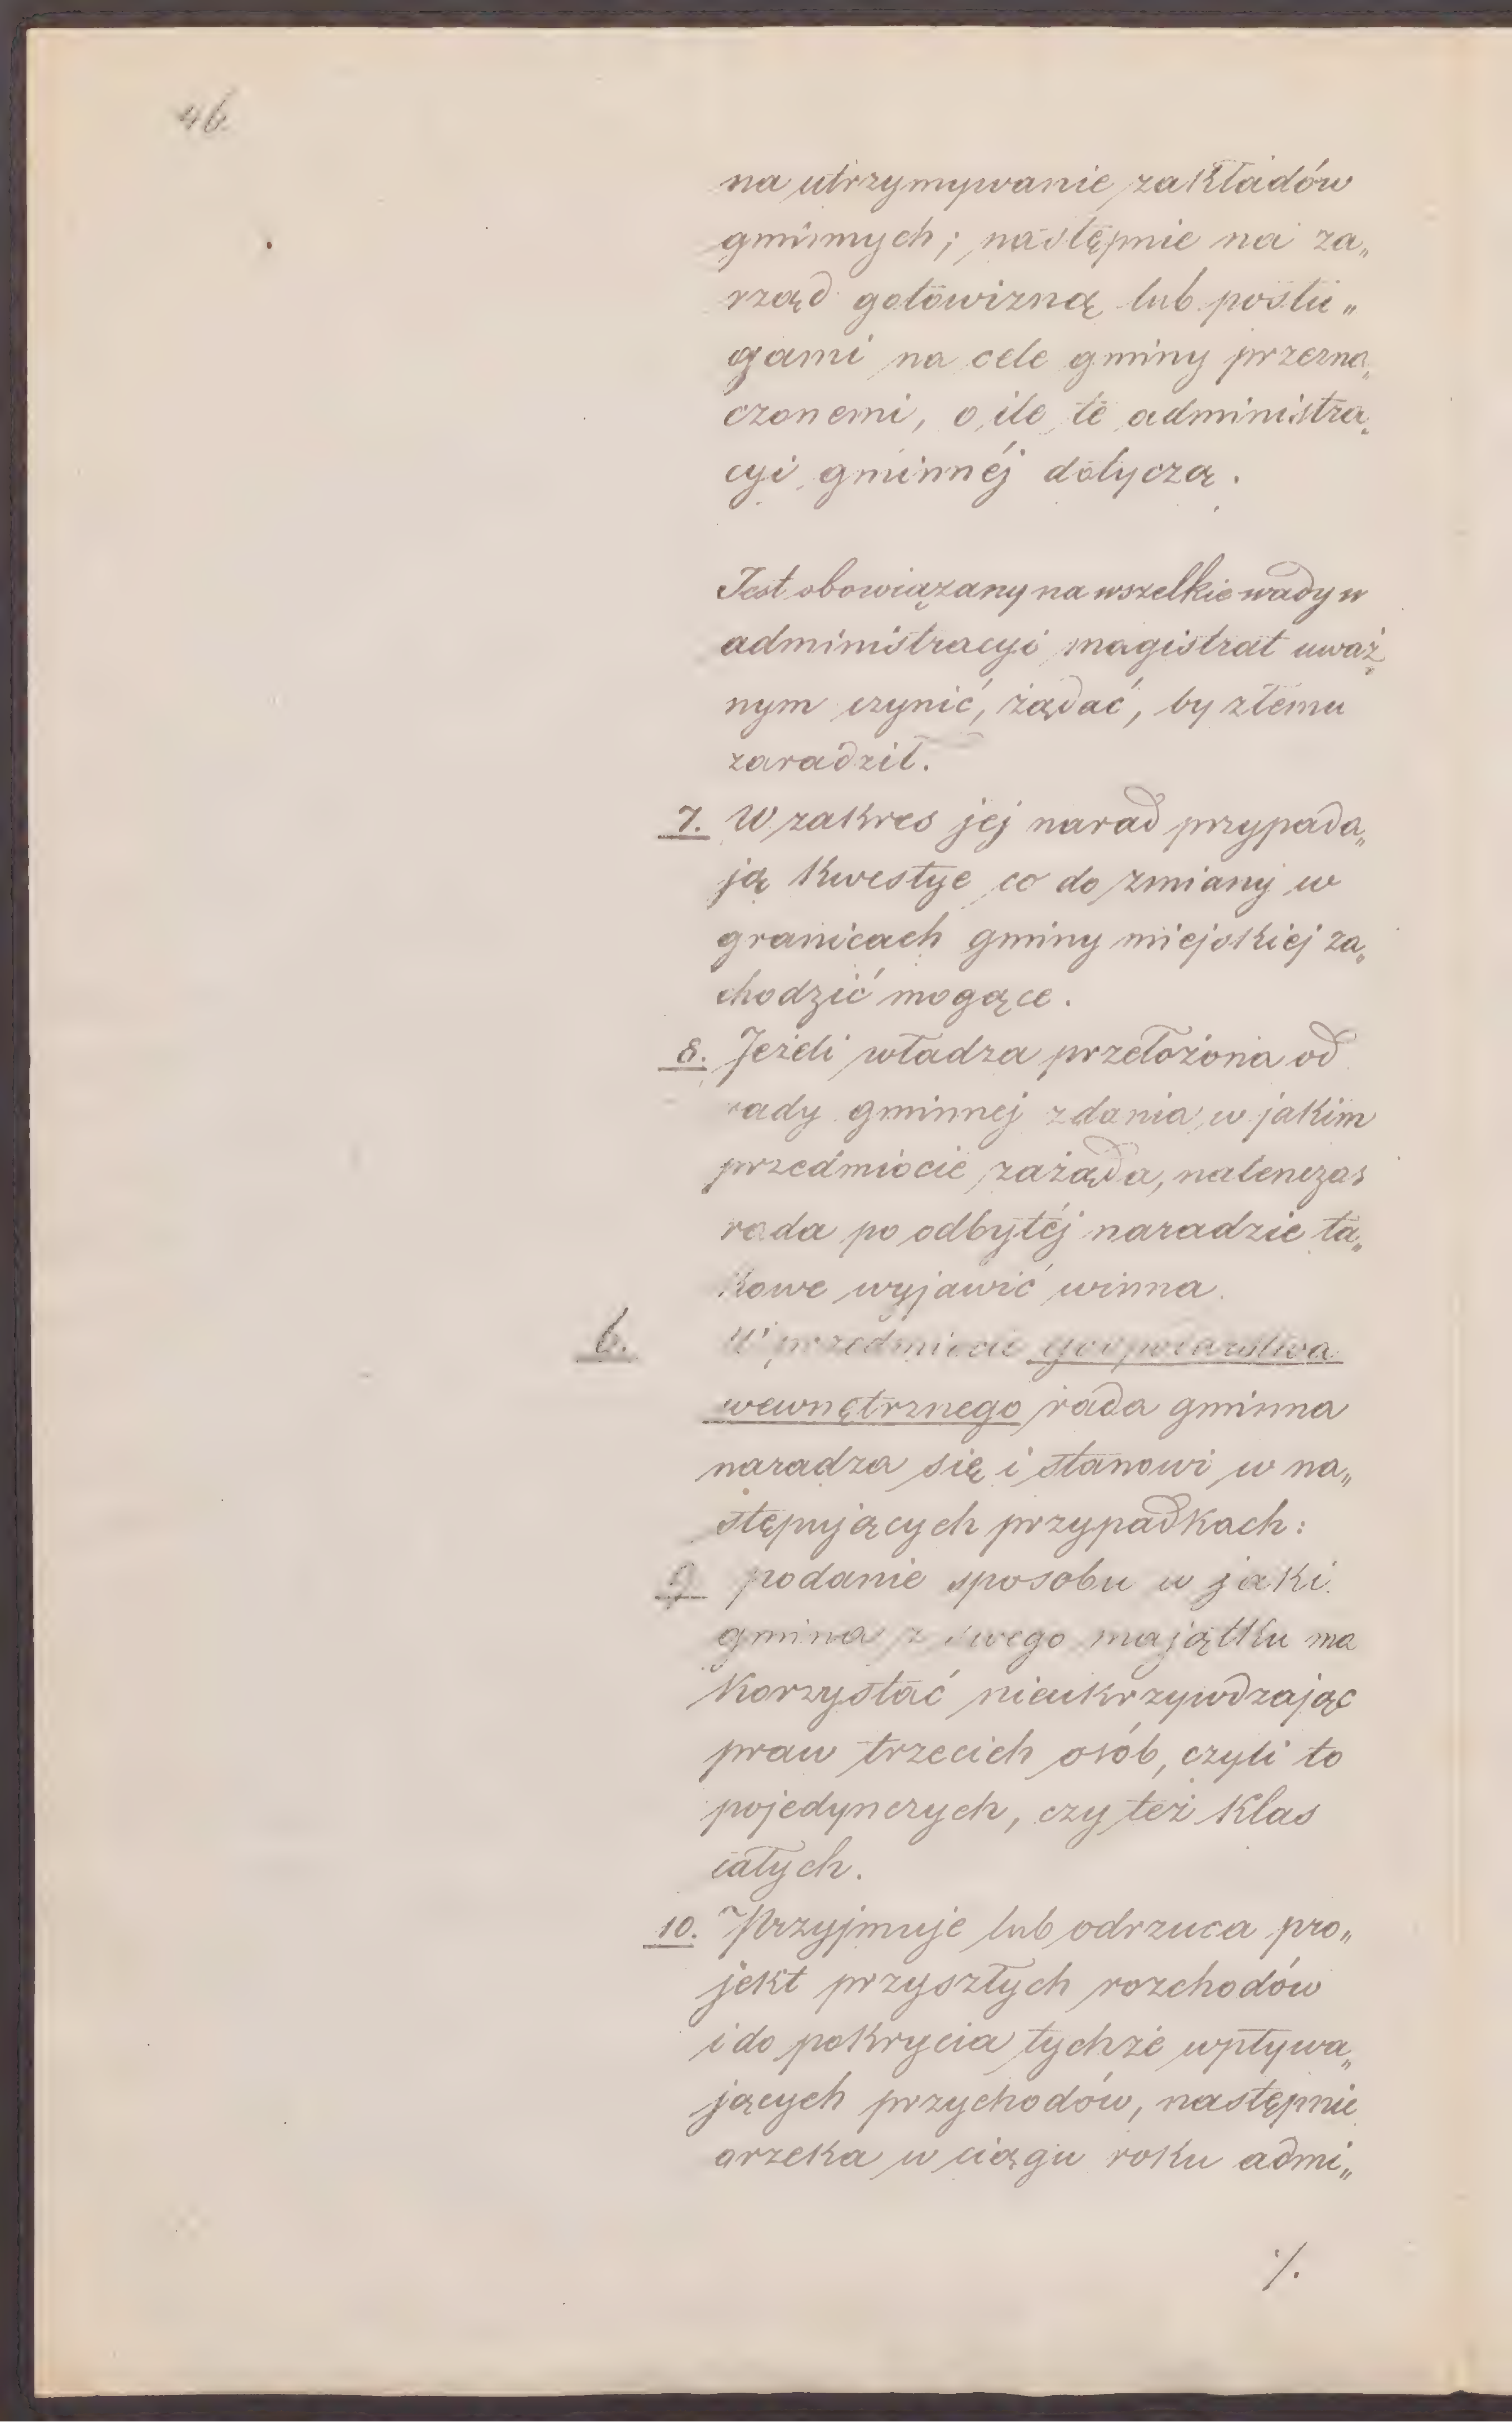 46.
na utrzymywanie zakładów
gminnych; następnie na za„
rząd gotowizną lub posłu„
gami na cele gminy przezna„
czonemi, o ile te administra„
cyi gminnéj dotyczą.
Jest obowiązany na wszelkie wady w
administracyi magistrat uważ„
nym czynić, żądać, by złemu
zaradził.
7. W zakres jej narad przypada„
ją kwestye co do zmiany w
granicach gminy miejskiej za„
chodzić mogące.
8. Jeżeli władza przełożona od
rady gminnej zdania w jakim
przedmiocie zażąda, natenczas
rada po odbytéj naradzie ta„
kowe wyjawić winna.
b. W przedmiocie gospodarstwa
wewnętrznego rada gminna
naradza się i stanowi w na„
stępujących przypadkach:
9. podanie sposobu w jaki
gmina z swego majątku ma
korzystać nieukrzywdzając
praw trzecich osób, czyli to
pojedynczych, czy też klas
całych.
10. Przyjmuje lub odrzuca pro„
jekt przyszłych rozchodów
i do pokrycia tychże wpływa„
jących przychodów, następnie
orzeka w ciągu roku admi„
./.